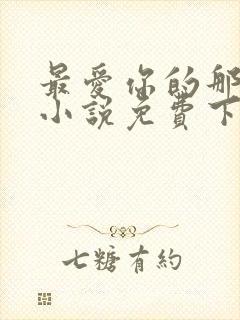 最爱你的那
小说免费下
七糖有約